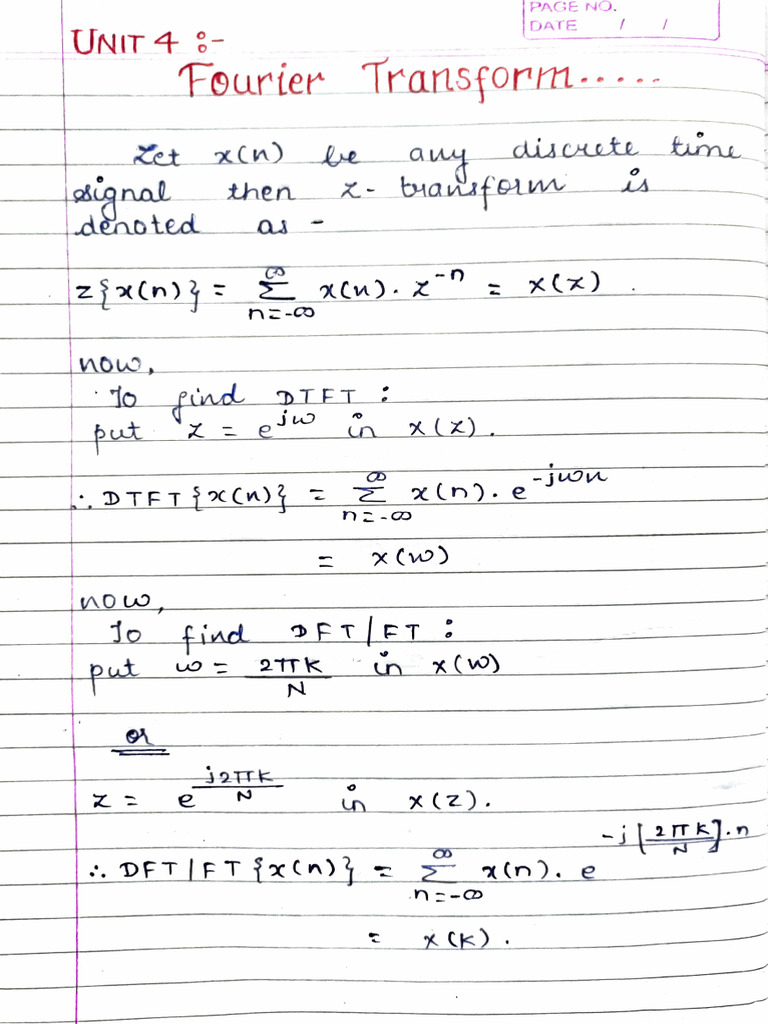 PAGE NO.
DATE / /
UNIT 4 :-
Fourier Transform.....
Let x(n) be any discrete time
signal then z-transform is
denoted as -
z{x(n)} = ∞∑n=-∞ x(n). z^-n = x(z).
now,
To find DTFT :
put z = e^jω in x(z).
∴ DTFT{x(n)} = ∞∑n=-∞ x(n). e^-jωn
= x(ω)
now,
To find DFT/FT :
put ω = 2πK/N in x(ω)
or
z = e^j2πK/N in x(z).
∴ DFT/FT{x(n)} = ∞∑n=-∞ x(n). e^-j[2πK/N].n
= x(K).